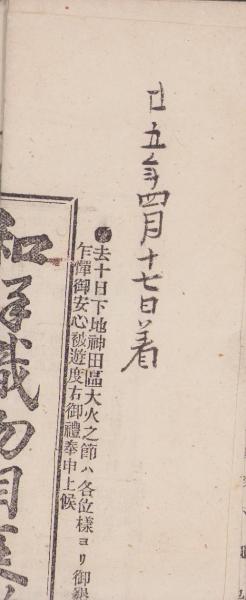 廿五年四月十七日着
去十日下地神田區大火之節ハ各位樣ヨリ御
乍憚御安心被遊度右御禮奉申上候
和洋織物目